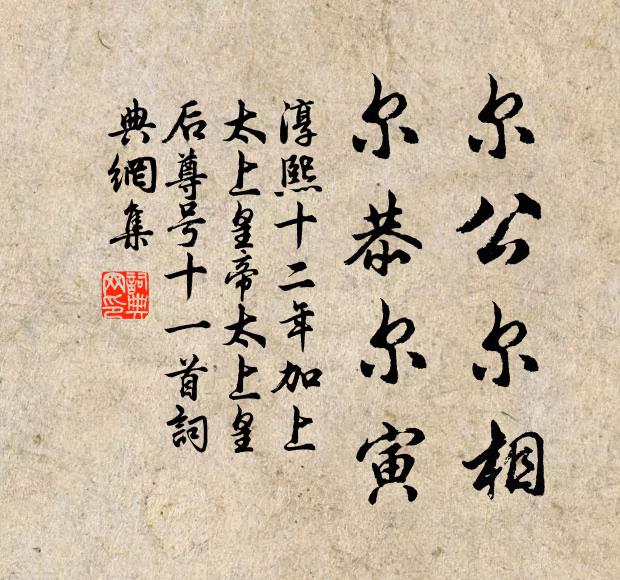 尔公尔相
尔恭尔寅
淳熙十二年加上
太上皇帝太上皇
后尊号十一首詞
典網集
詞典網印